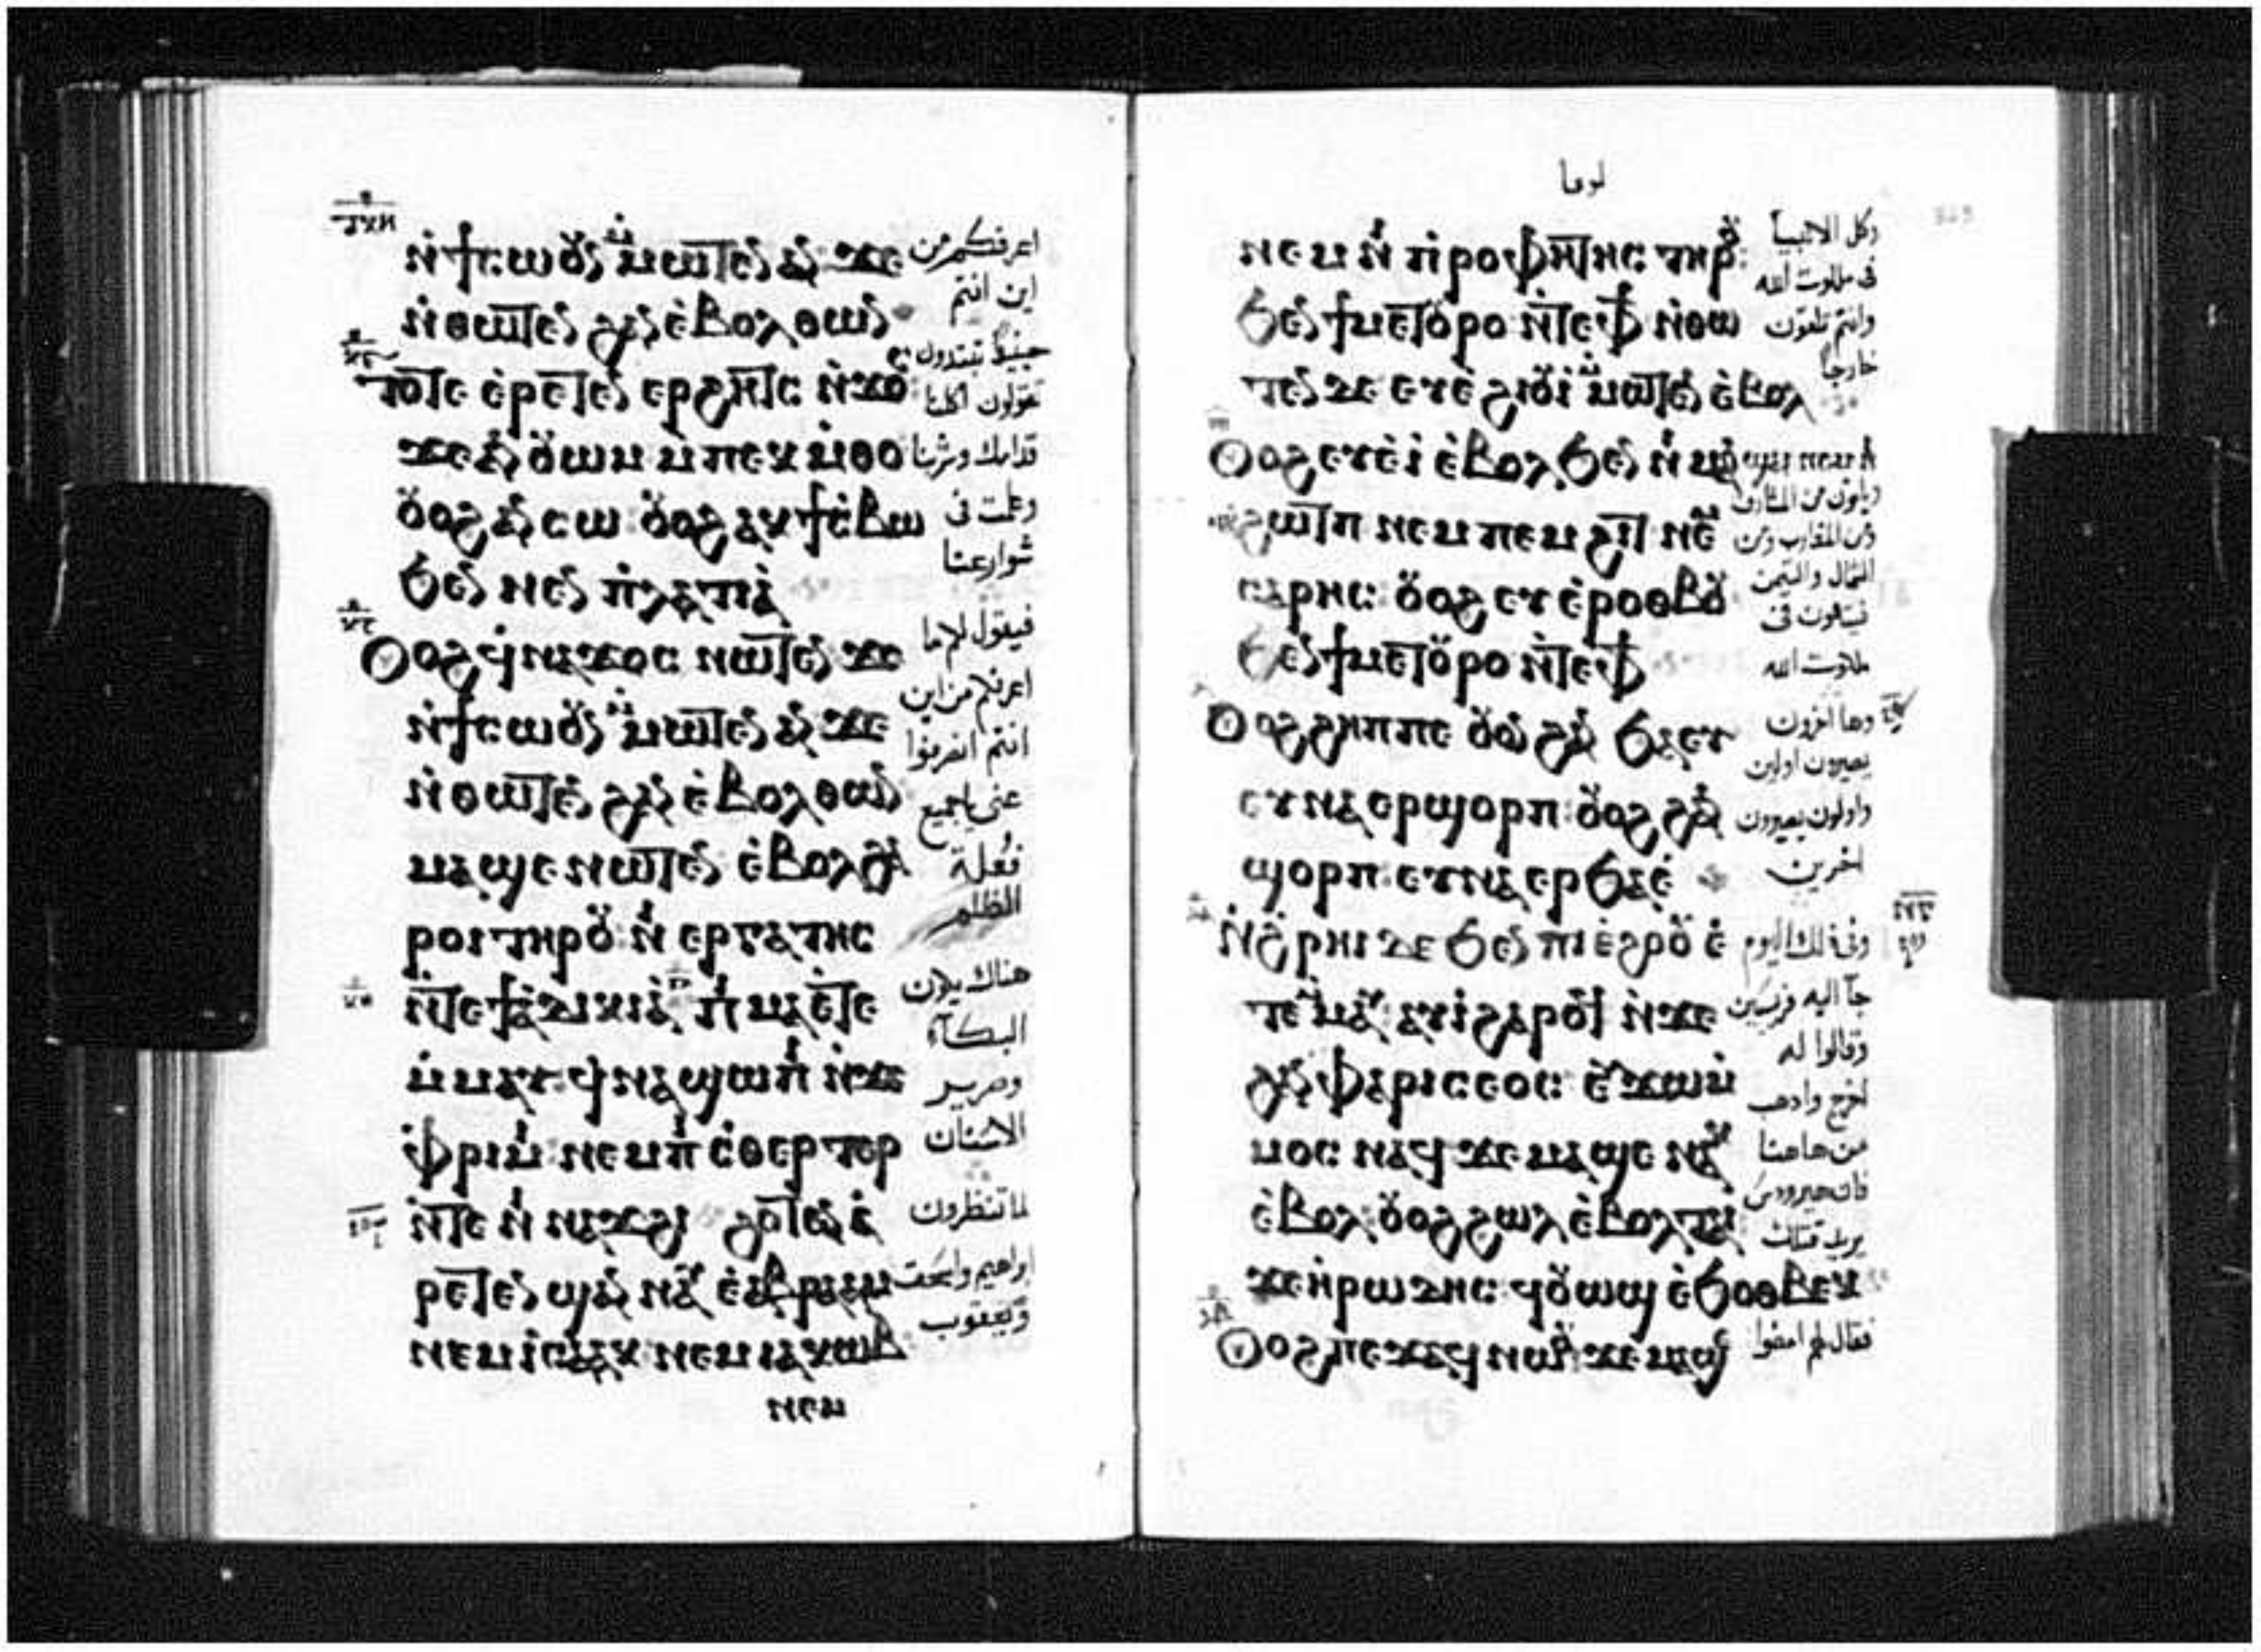 ⲛ̀ϯⲥⲱⲟⲩⲛ ⲙ̀ⲙⲱⲧⲉⲛ ⲁⲛ ϫⲉ
ⲛ̀ⲑⲱⲧⲉⲛ ϩⲁⲛ ⲉ̀ⲃⲟⲗ ⲑⲱⲛ
ⲧⲟⲧⲉ ⲉ̀ⲣⲉⲧⲉⲛ ⲉⲣϩⲏⲧⲥ ⲛ̀ϫⲟⲥ
ϫⲉ ⲁⲛⲟⲩⲱⲙ ⲙ̀ⲡⲉⲕⲙ̀ⲑⲟ
ⲟⲩⲟϩ ⲁⲛⲥⲱ ⲟⲩⲟϩ ⲁⲕϯⲥ̀ⲃⲱ
ϧⲉⲛ ⲛⲉⲛ ⲡ̀ⲗⲁⲧⲓⲁ̀
ⲟⲩⲟϩ ϥ̀ⲛⲁϫⲟⲥ ⲛⲱⲧⲉⲛ ϫⲉ
ⲛ̀ϯⲥⲱⲟⲩⲛ ⲙ̀ⲙⲱⲧⲉⲛ ⲁⲛ ϫⲉ
ⲛ̀ⲑⲱⲧⲉⲛ ϩⲁⲛ ⲉ̀ⲃⲟⲗ ⲑⲱⲛ
ⲙⲁϣⲉ ⲛⲱⲧⲉⲛ ⲉ̀ⲃⲟⲗ ϩⲁ
ⲣⲟⲓ ⲧⲏⲣⲟⲩ ⲛⲓ ⲉⲣⲅⲁⲧⲏⲥ
ⲛ̀ⲧⲉ ϯⲁ̀ⲇⲓⲕⲓⲁ̀ ⲡⲓⲙⲁ ⲉ̀ⲧⲉ
ⲙ̀ⲙⲁⲩ ϥ̀ⲛⲁϣⲱⲡⲓ ⲛ̀ϫⲉ
ⲫ̀ⲣⲓⲙⲓ ⲛⲉⲙ ⲡⲓ ⲥ̀ⲑⲉⲣⲧⲉⲣ
ⲛ̀ⲧⲉ ⲛⲓ ⲛⲁϫϩⲓ ϩⲟⲧⲁⲛ ⲉ̀
ⲣⲉⲧⲉⲛ ϣⲁⲛ ⲛⲁⲩ ⲉ̀ⲁⲃⲣⲁⲁⲙ
ⲛⲉⲙ ⲓⲥⲁⲁⲕ ⲛⲉⲙ ⲓⲁⲕⲱⲃ
ⲛⲉⲙ
اعرفكم من
اين انتم
حينيذ تبتدون
تقولون اكلنا
قدامك وشربنا
وعلمت فى
شوارعنا
فيقول لكم ما
اعرفكم من اين
انتم انصرفوا
عنى يا جميع
فعلة
الظلم
هناك يكون
البكآء
وصرير
الاسنان
اذا تنظرون
ابراهيم واسحق
ويعقوب
لوقا
ⲛⲉⲙ ⲛⲓ ⲡ̀ⲣⲟⲫⲏⲧⲏⲥ ⲧⲏⲣⲟⲩ
ϧⲉⲛ ϯⲙⲉⲧⲟⲩⲣⲟ ⲛ̀ⲧⲉ ⲫϯ ⲛ̀ⲑⲱ
ⲧⲉⲛ ⲇⲉ ⲉⲩⲉ̀ϩⲓⲟⲩⲓ̀ ⲙ̀ⲙⲱⲧⲉⲛ ⲉ̀ⲃⲟⲗ
ⲟⲩⲟϩ ⲉⲩⲉ̀ⲓ̀ ⲉ̀ⲃⲟⲗ ϧⲉⲛ ⲛⲓ ⲙⲁⲛϣⲁⲓ ⲛⲉⲙ ⲛⲓ
ϩⲱⲧⲡ ⲛⲉⲙ ⲡⲉⲙϩⲓⲧ ⲛⲉⲙ
ⲥⲁⲣⲏⲥ ⲟⲩⲟϩ ⲉⲩⲉ̀ⲣⲟⲑⲃⲟⲩ
ϧⲉⲛ ϯⲙⲉⲧⲟⲩⲣⲟ ⲛ̀ⲧⲉ ⲫϯ
ⲟⲩⲟϩ ϩⲏⲡⲡⲉ ⲟⲩⲟⲛ ϩⲁⲛ ϧⲁⲉⲩ
ⲉⲩⲛⲁⲉⲣϣⲟⲣⲡ ⲟⲩⲟϩ ϩⲁⲛ
ϣⲟⲣⲡ ⲉⲩⲛⲁⲉⲣϧⲁⲉ̀
ⲛ̀ϩ̀ⲣⲏⲓ ⲇⲉ ϧⲉⲛ ⲡⲓⲉ̀ϩⲟⲟⲩ ⲉ̀
ⲧⲉⲙⲙⲁⲩ ⲁⲩⲓ̀ ϩⲁⲣⲟϥ ⲛ̀ϫⲉ
ϩⲁⲛ ⲫⲁⲣⲓⲥⲉⲟⲥ ⲉⲩϫⲱⲙ̀
ⲙⲟⲥ ⲛⲁϥ ϫⲉ ⲙⲁϣⲉ ⲛⲁⲕ
ⲉ̀ⲃⲟⲗ ⲟⲩⲟϩ ϩⲱⲗ ⲉ̀ⲃⲟⲗ ⲧⲁⲓ
ϫⲉ ⲏ̀ⲣⲱⲇⲏⲥ ϥⲟⲩⲱϣ ⲉ̀ϧⲟⲑⲃⲉⲕ
ⲟⲩⲟϩ ⲡⲉϫⲁϥ ⲛⲱⲟⲩ ϫⲉ ⲙⲁϣⲉ
وكل الانبيآ
فى ملكوت الله
وانتم تلقون
خارجاً
وياتون من المشارق
ومن المغارب ومن
الشمال واليمن
فيتكون فى
ملكوت الله
وها اخرون
يصيرون اولين
واولون يصيرون
اخرين
وفى ذلك اليوم
جآ اليه فريسين
وقالوا له
اخرج واذهب
من هاهنا
فان هيرودس
يريد قتلك
فقال لهم امضوا